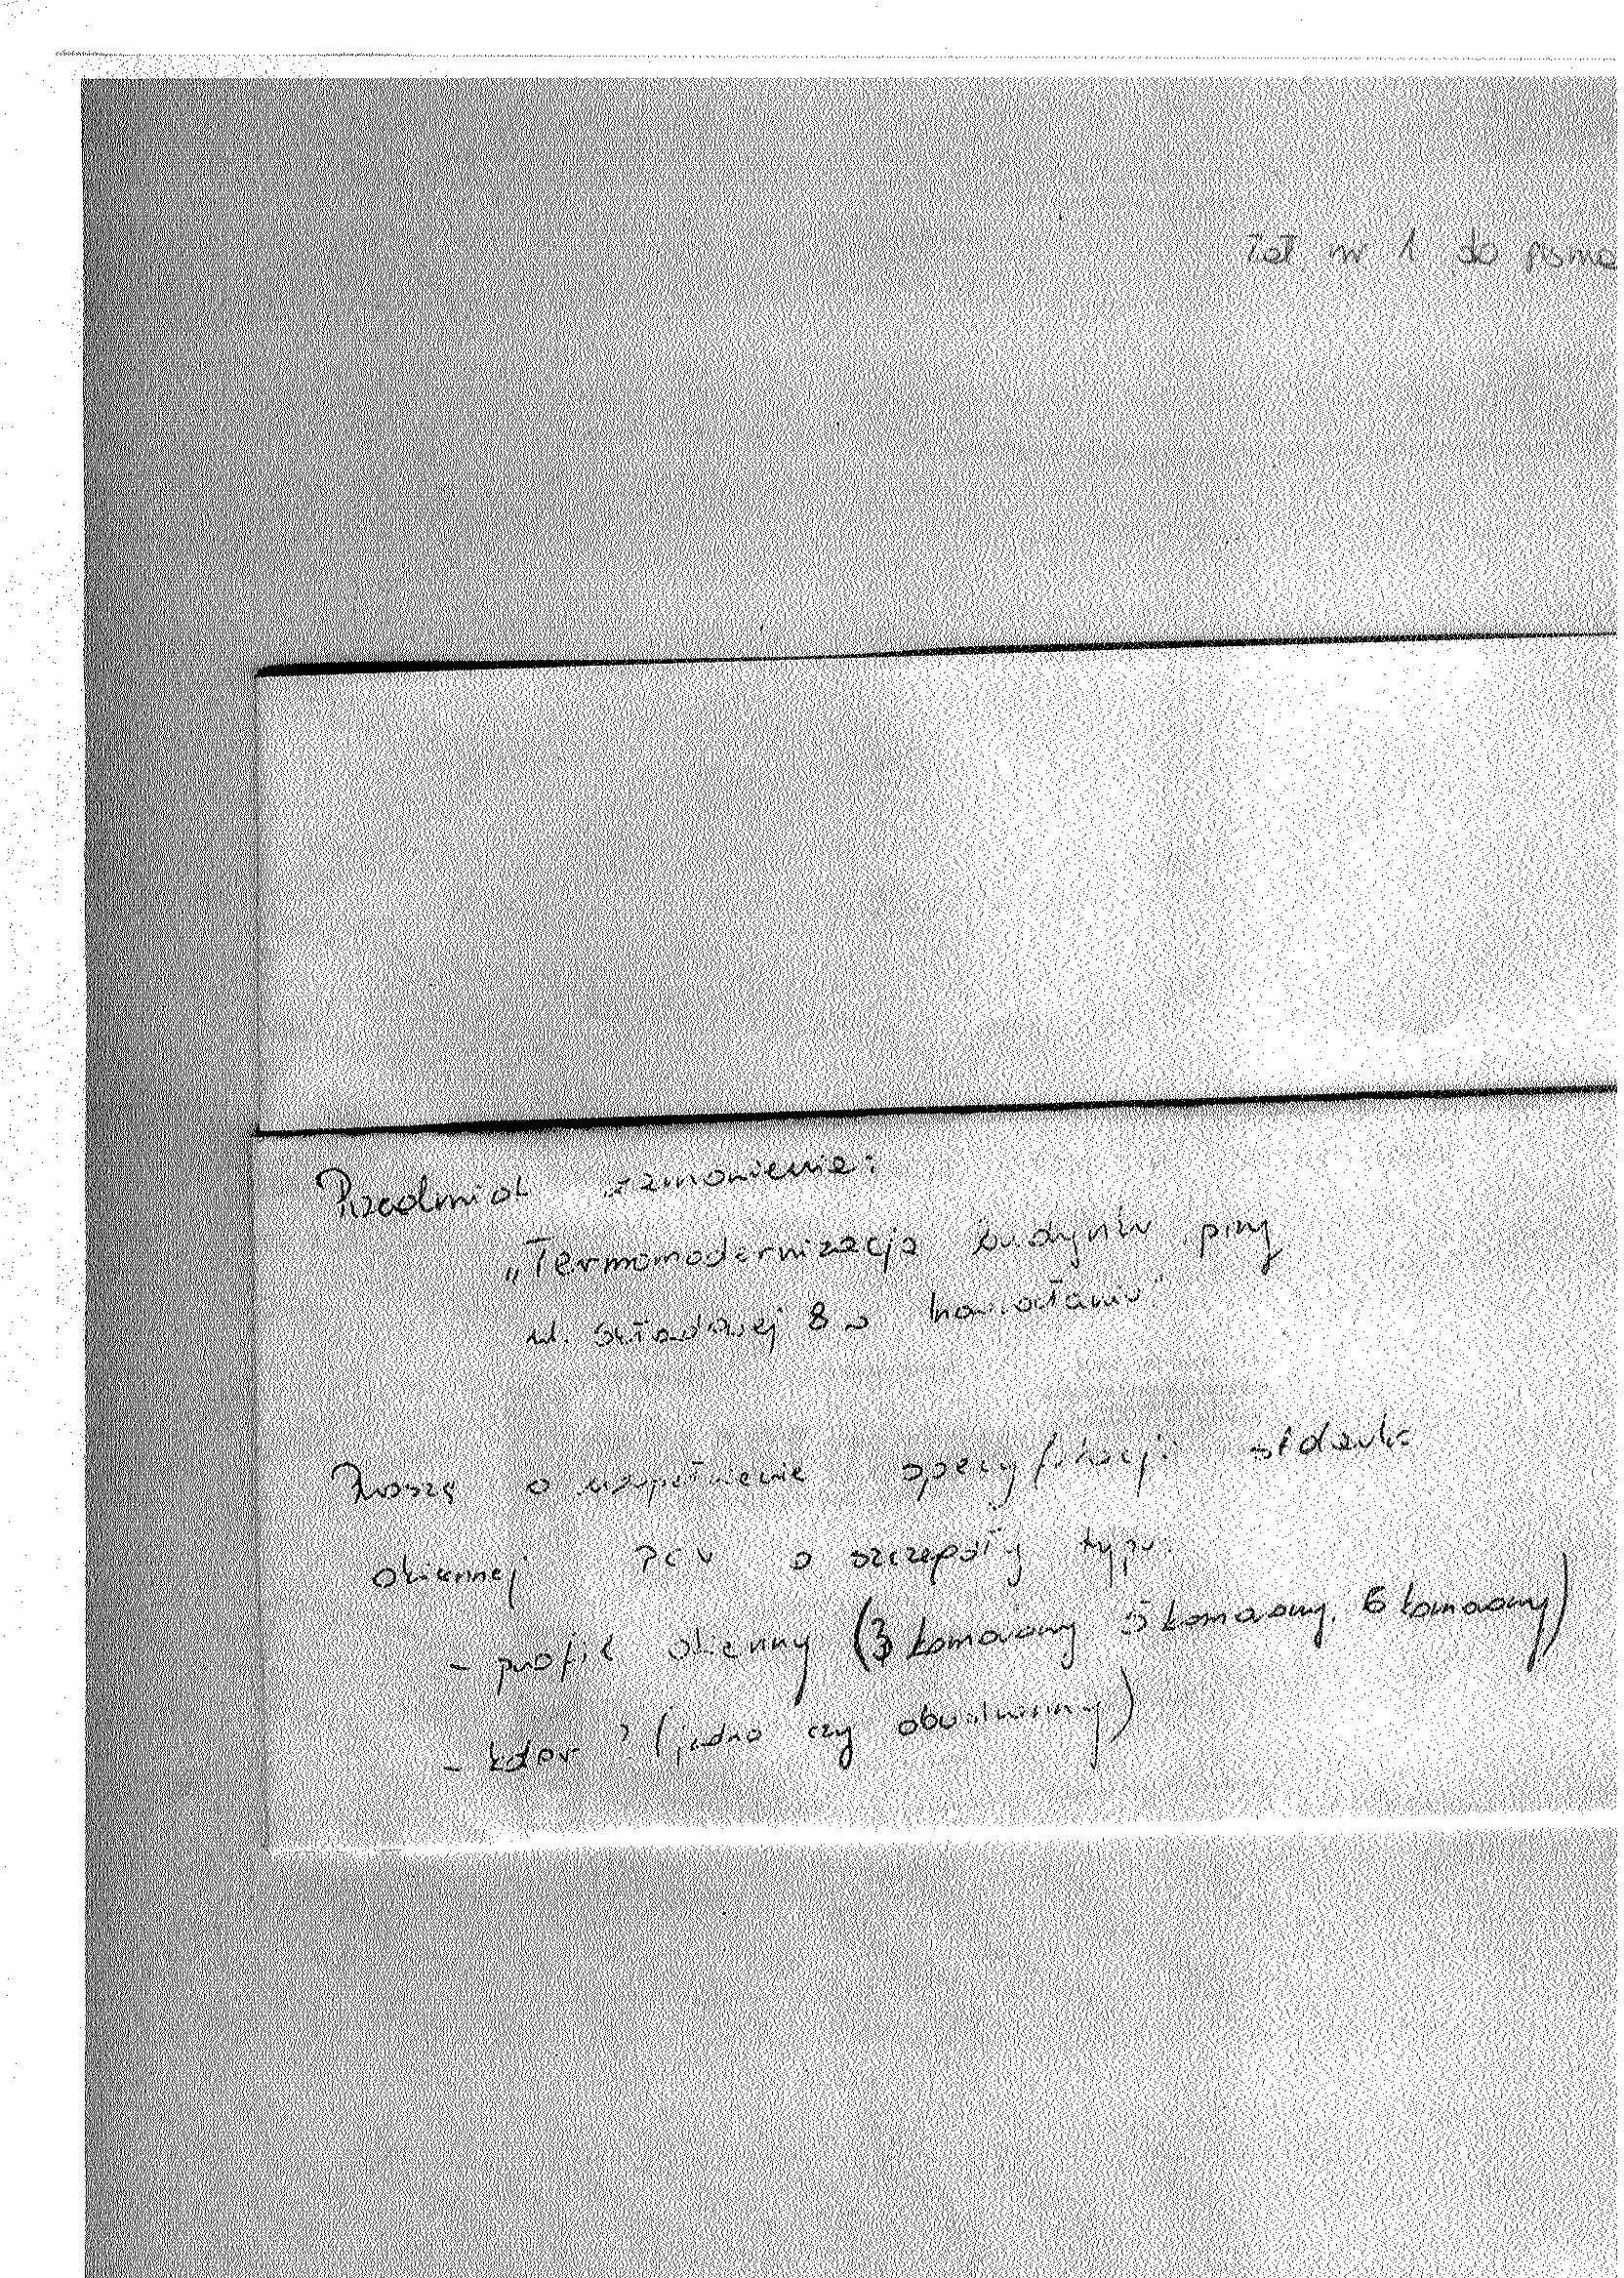 Zał. nr 1 do pisma
Przedmiot zamówienia:
„Termomodernizacja budynku przy
ul. Składowej 8 w Inowrocławiu"
Proszę o uzupełnienie specyfikacji stolarki
okiennej PCV o szczegóły typu:
- profil okienny (3 komorowy, 5 komorowy, 6 komorowy)
- kolor ? (jedno czy obustronny)